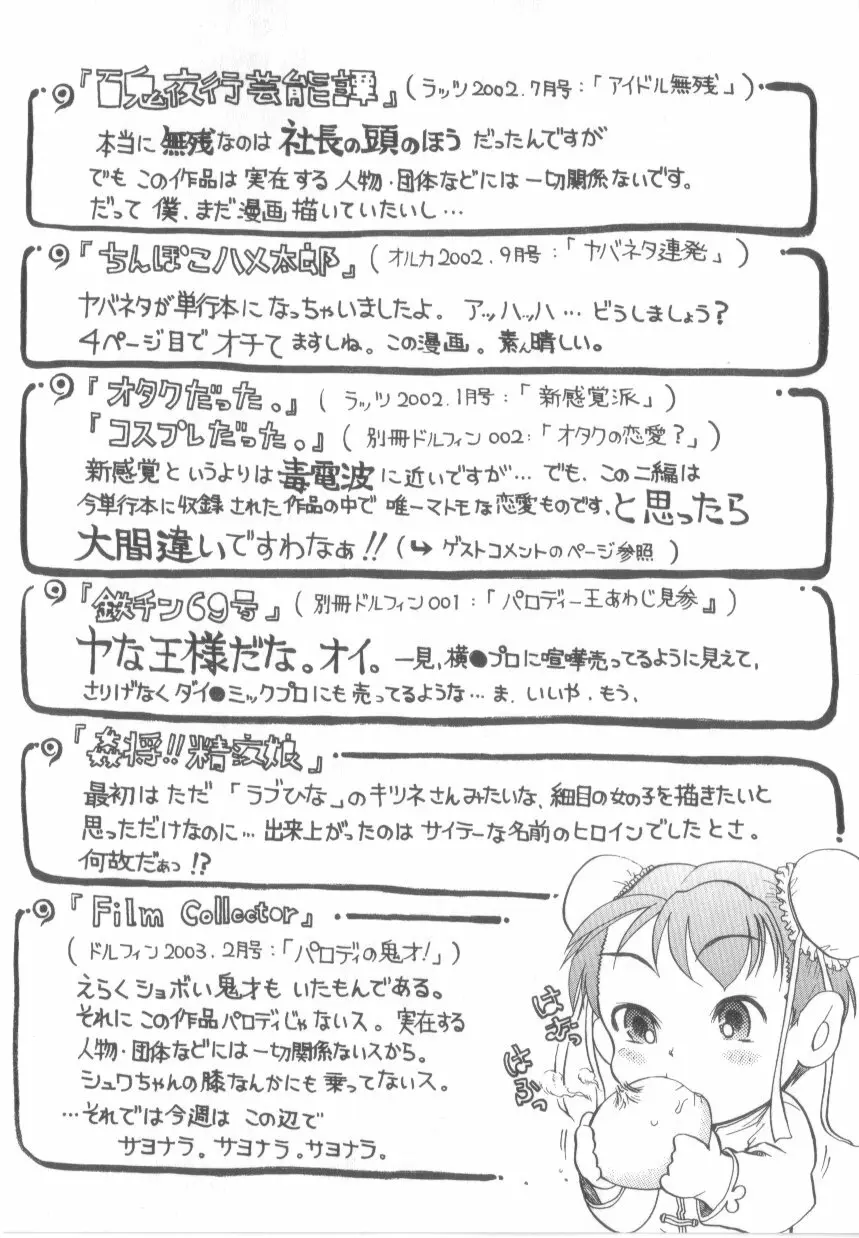 『百鬼夜行芸能譚』(ラッツ2002.7月号:「アイドル無残」)
本当に無残なのは社長の頭のほうだったんですが
でもこの作品は実在する人物・団体などには一切関係ないです。
だって僕、まだ漫画描いていたいし…
『ちんぽこハメ太郎』(オルカ2002.9月号:「ヤバネタ連発」)
ヤバネタが単行本になっちゃいましたよ。アッハッハ…どうしましょう?
4ページ目でオチてますしね。この漫画。素ん晴しい。
『オタクだった。』(ラッツ2002.1月号:「新感覚派」)
『コスプレだった。』(別冊ドルフィン002:「オタクの恋愛?」)
新感覚というよりは毒電波に近いですが…でも、この二編は
今単行本に収録された作品の中で唯一マトモな恋愛ものです、と思ったら
大間違いですわなぁ!!(↪ゲストコメントのページ参照)
『鉄チン69号』(別冊ドルフィン001:「パロディー王あわじ見参』)
ヤな王様だな。オイ。一見、横●プロに喧嘩売ってるように見えて、
さりげなくダイ●ミックプロにも売ってるような…ま、いいや.もう、
『姦将!!精液娘』
最初はただ「ラブひな」のキツネさんみたいな、細目の女の子を描きたいと
思っただけなのに…出来上がったのはサイテーな名前のヒロインでしたとさ。
何故だぁっ!?
『Film Collector』
(ドルフィン2003.2月号:「パロディの鬼才!」)
えらくショボい鬼才もいたもんである。
それにこの作品パロディじゃないス。実在する
人物・団体などには一切関係ないスから。
シュワちゃんの膝なんかにも乗ってないス。
…それでは今週はこの辺で
サヨナラ。サヨナラ。サヨナラ。
はふっ
はふっ